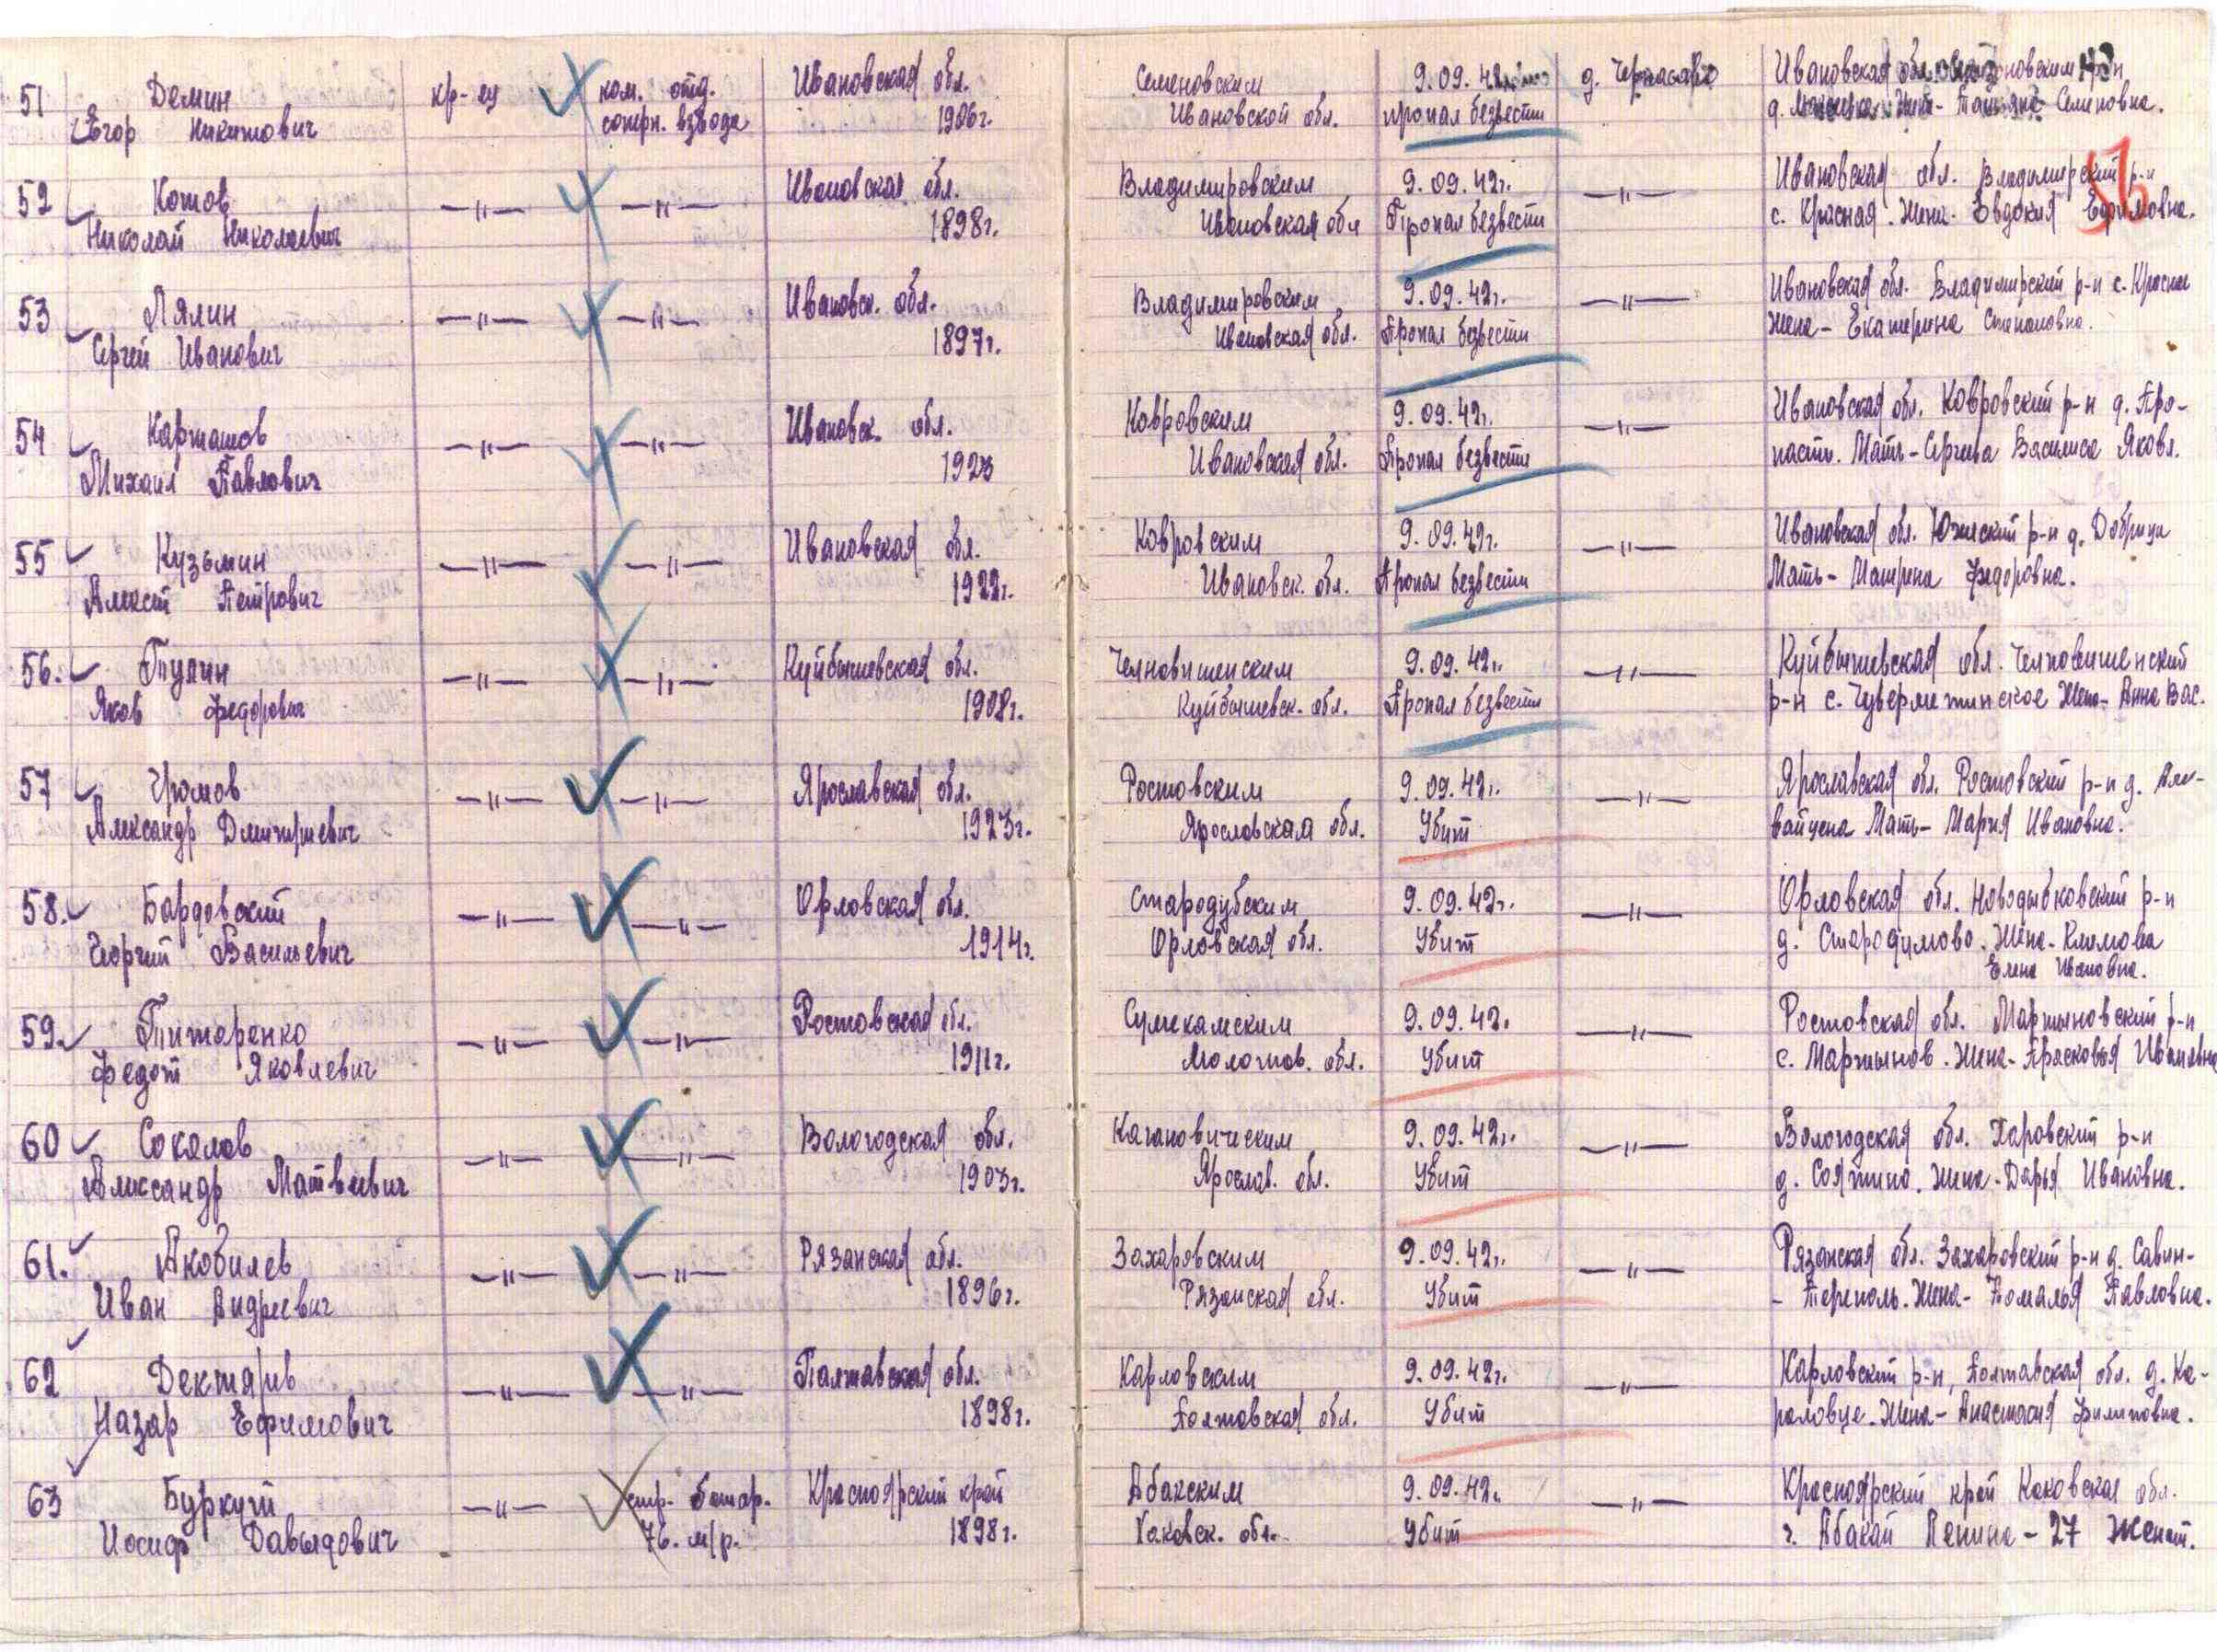 51 Демин кр-ец ком. отд. Ивановская обл. Семеновским 9.09.42 д. Черкасово Ивановская обл.
Егор Никитович сапрн. взвода 1906г. Ивановской обл. пропал безвести д. Жена- Татьяна Семеновна.
52 Котов —"— —"— Ивановская обл. Владимировским 9.09.42г. —"— Ивановская обл. Владимирский р-н
Николай Николаевич 1898г. Ивановская обл Пропал безвести с. Красная. Жена- Евдокия Ефимовна.
53 Лялин —"— —"— Ивановск. обл. Владимировским 9.09.42г. —"— Ивановская обл. Владимирский р-н с. Красное
Сергей Иванович 1897г. Ивановская обл. Пропал безвести Жена- Екатерина Степановна.
54 Карташов —"— —"— Ивановск. обл. Ковровским 9.09.42г. —"— Ивановская обл. Ковровский р-н д. Про-
Михаил Павлович 1923 Ивановская обл. Пропал безвести пасть. Мать- Сергеева Василиса Яковл.
55 Кузьмин —"— —"— Ивановская обл. Ковровским 9.09.42г. —"— Ивановская обл. Южский р-н д. Добрица
Алексей Петрович 1922г. Ивановск. обл. Пропал безвести Мать- Матрена Федоровна.
56. Тулин —"— —"— Куйбышевская обл. Челновишенским 9.09.42г. —"— Куйбышевская обл. Челновишенский
Яков Федорович 1908г. Куйбышевск. обл. Пропал безвести р-н с. Чуверметинское Жена- Анна Вас.
57 Громов —"— —"— Ярославская обл. Ростовским 9.09.42г. —"— Ярославская обл. Ростовский р-н д.
Александр Дмитриевич 1923г. Ярославская обл. Убит Мать- Мария Ивановна.
58. Бардовский —"— —"— Орловская обл. Стародубским 9.09.42г. —"— Орловская обл. Новодыбковский р-н
Георгий Васильевич 1914г. Орловская обл. Убит д. Стародумово. Жена- Климова
Елена Ивановна.
59. Титаренко —"— —"— Ростовская обл. Сумекамским 9.09.42г. —"— Ростовская обл. Мартыновский р-н
Федот Яковлевич 1911г. Молотов. обл. Убит с. Мартынов. Жена- Прасковья Ивановна
60 Соколов —"— —"— Вологодская обл. Кагановическим 9.09.42г. —"— Вологодская обл. Харовский р-н
Александр Матвеевич 1903г. Ярослав. обл. Убит д. Соятино. Жена- Дарья Ивановна.
61. Яковлев —"— —"— Рязанская обл. Захаровским 9.09.42г. —"— Рязанская обл. Захаровский р-н д. Савин-
Иван Андреевич 1896г. Рязанская обл. Убит Жена- Павловна.
62 Дектярев —"— —"— Палтавская обл. Карловским 9.09.42г. —"— Карловский р-н, Полтавская обл. д. Ка-
Назар Ефимович 1898г. Полтавская обл. Убит раловце. Жена- Анастасия Филиповна.
63 Буркуй —"— стр. батар. Красноярский край Абакским 9.09.42г. —"— Красноярский край Каковская обл.
Иосиф Давыдович 76. м/р. 1898г. Хаковск. обл. Убит г. Абакан Ленина- 27 Женат.